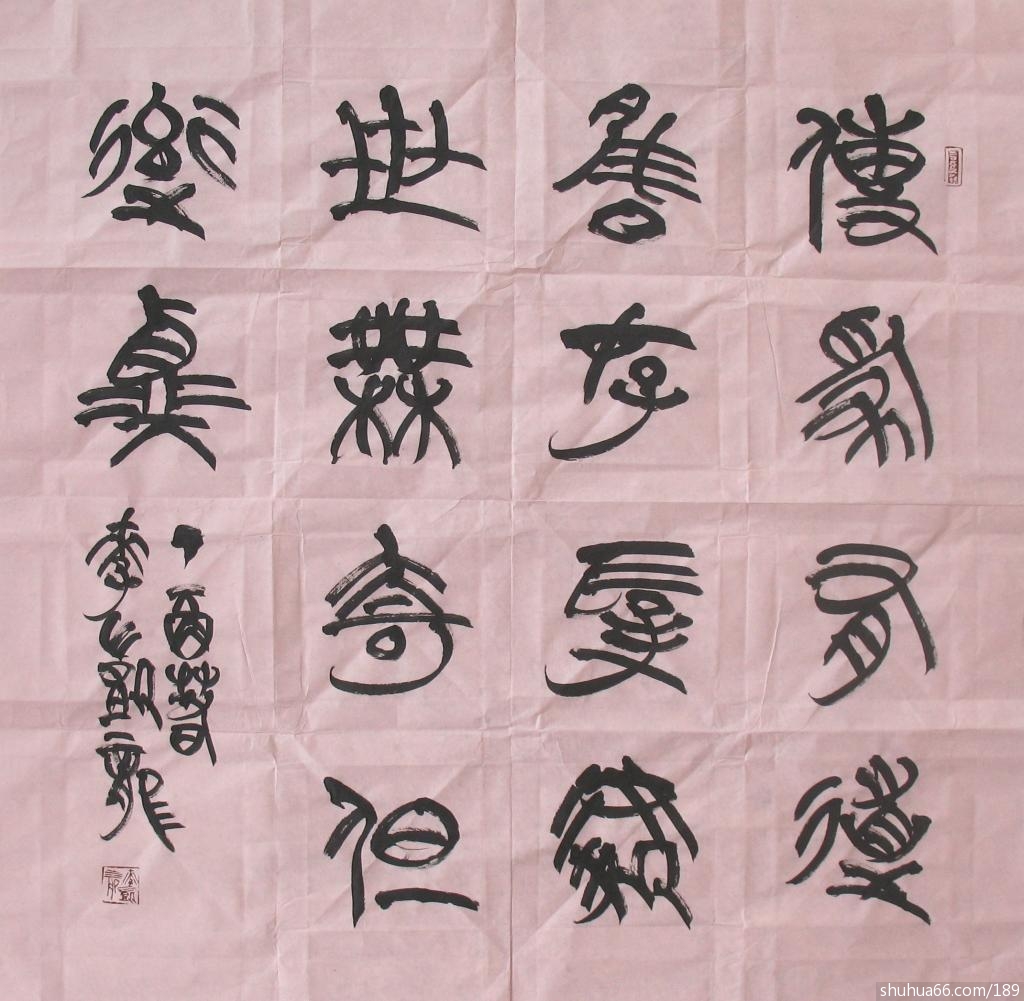 傳家有道
唯存厚處
世無奇但
率真
丁酉春
李 龍
shuhua66.com/189